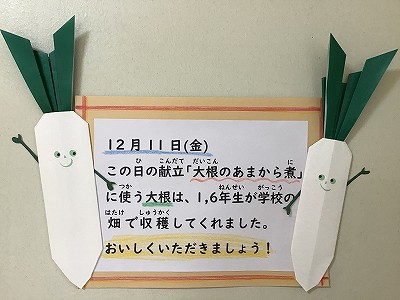 12月11日(金)
この日の献立「大根のあまから煮」
に使う大根は、1,6年生が学校の
畑で収穫してくれました。
おいしくいただきましょう！